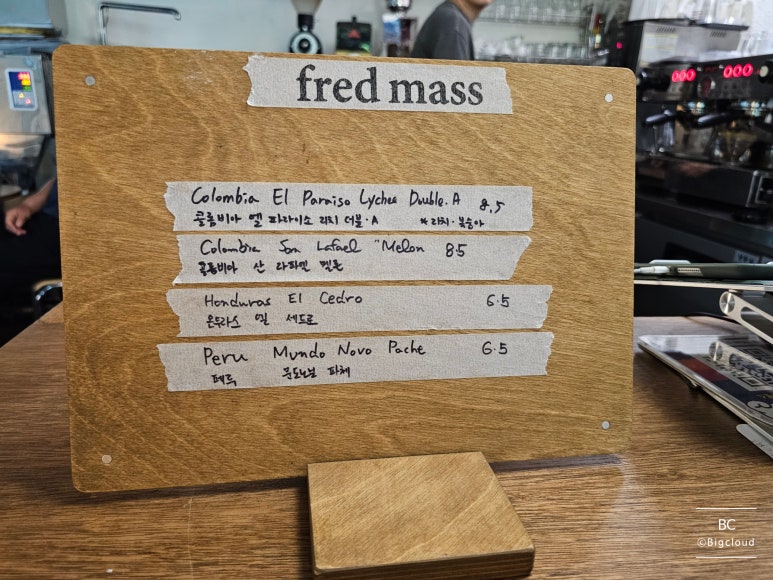 fred mass
Colombia El Paraiso Lychee Double.A 8.5
콜롬비아 엘 파라이소 리치 더블·A *리치·복숭아
Colombia San Lafael "Melon 8.5
콜롬비아 산 라파엘 멜론
Honduras El Cedro 6.5
온두라스 엘 세드로
Peru Mundo Novo Pache 6.5
페루 문도노보 파체
000
BC
©Bigcloud